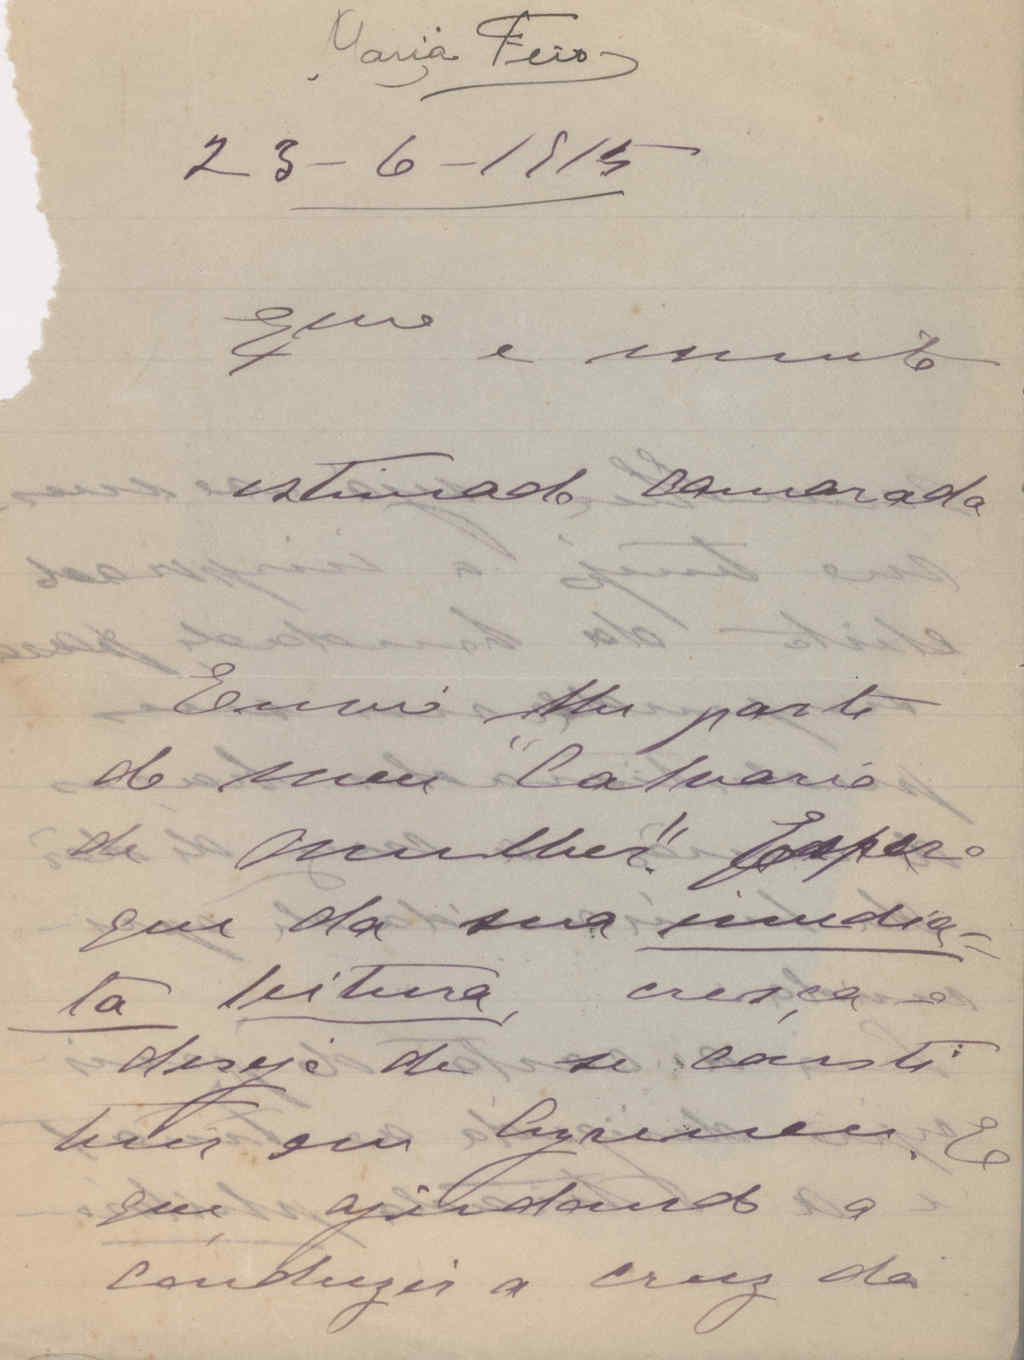 Maria Feio
23-6-1915
Exmo e muito
estimado camarada
Envio lhe parte
do meu "Calvario
de Mulher". Espero
que da sua imedia-
ta leitura, cresça o
desejo de se consti
tuir em Cyreneu. E
que, ajudando a
conduzir a cruz da